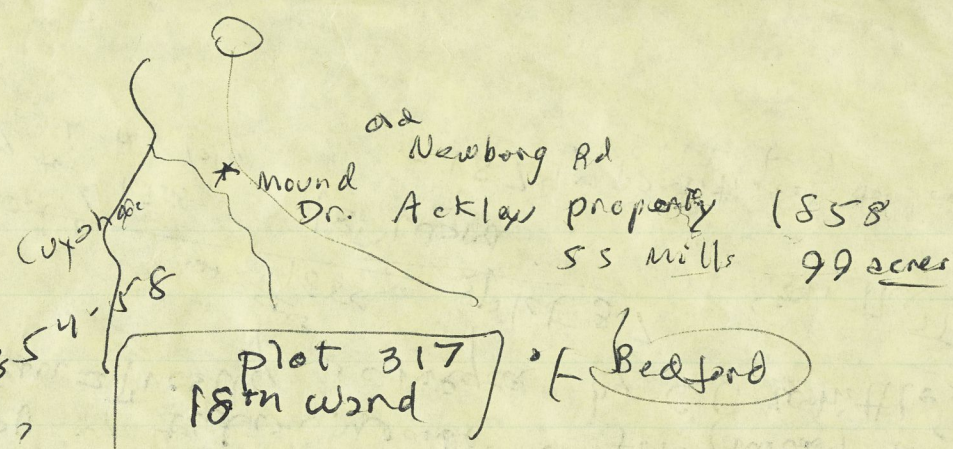 old
Newborg Rd
Mound
Dr. Ackley property 1858
SS Mills 99 acres
Cuyahoga
54-58
plot 317
18th ward
Bedford